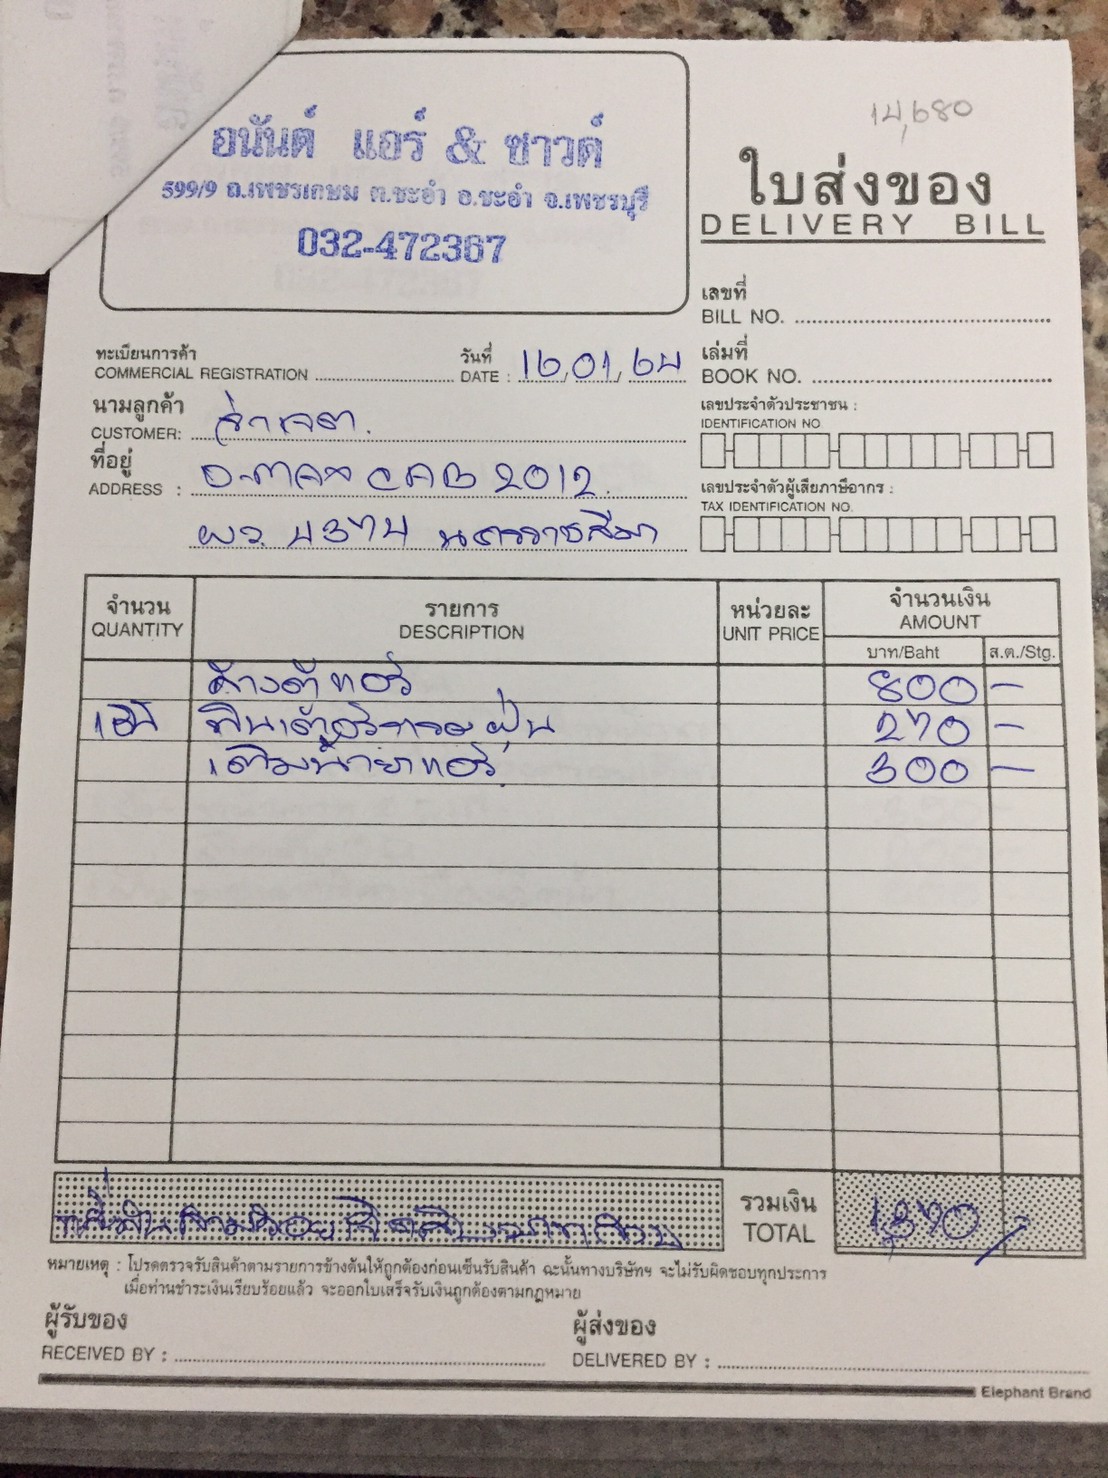 14,680
อนันต์ แอร์ & ซาวด์
599/9 ถ.เพชรเกษม ต.ชะอำ อ.ชะอำ จ.เพชรบุรี
032-472367
ใบส่งของ
DELIVERY BILL
เลขที่
BILL NO.
ทะเบียนการค้า
COMMERCIAL REGISTRATION
วันที่
DATE : 16,01,64
เล่มที่
BOOK NO.
นามลูกค้า
CUSTOMER:
เลขประจำตัวประชาชน :
IDENTIFICATION NO.
ที่อยู่
ADDRESS : 2012
ผว 4374 นครราชสีมา
เลขประจำตัวผู้เสียภาษีอากร :
TAX IDENTIFICATION NO.
จำนวน
QUANTITY
รายการ
DESCRIPTION
หน่วยละ
UNIT PRICE
จำนวนเงิน
AMOUNT
บาท/Baht ส.ต./Stg.
ล้างตู้แอร์ 800 –
ฝุ่น 270 –
เติมน้ำยาแอร์ 300 –
รวมเงิน
TOTAL
1,370
หมายเหตุ : โปรดตรวจรับสินค้าตามรายการข้างต้นให้ถูกต้องก่อนเซ็นรับสินค้า ฉะนั้นทางบริษัทฯ จะไม่รับผิดชอบทุกประการ
เมื่อท่านชำระเงินเรียบร้อยแล้ว จะออกใบเสร็จรับเงินถูกต้องตามกฎหมาย
ผู้รับของ
RECEIVED BY :
ผู้ส่งของ
DELIVERED BY :
Elephant Brand